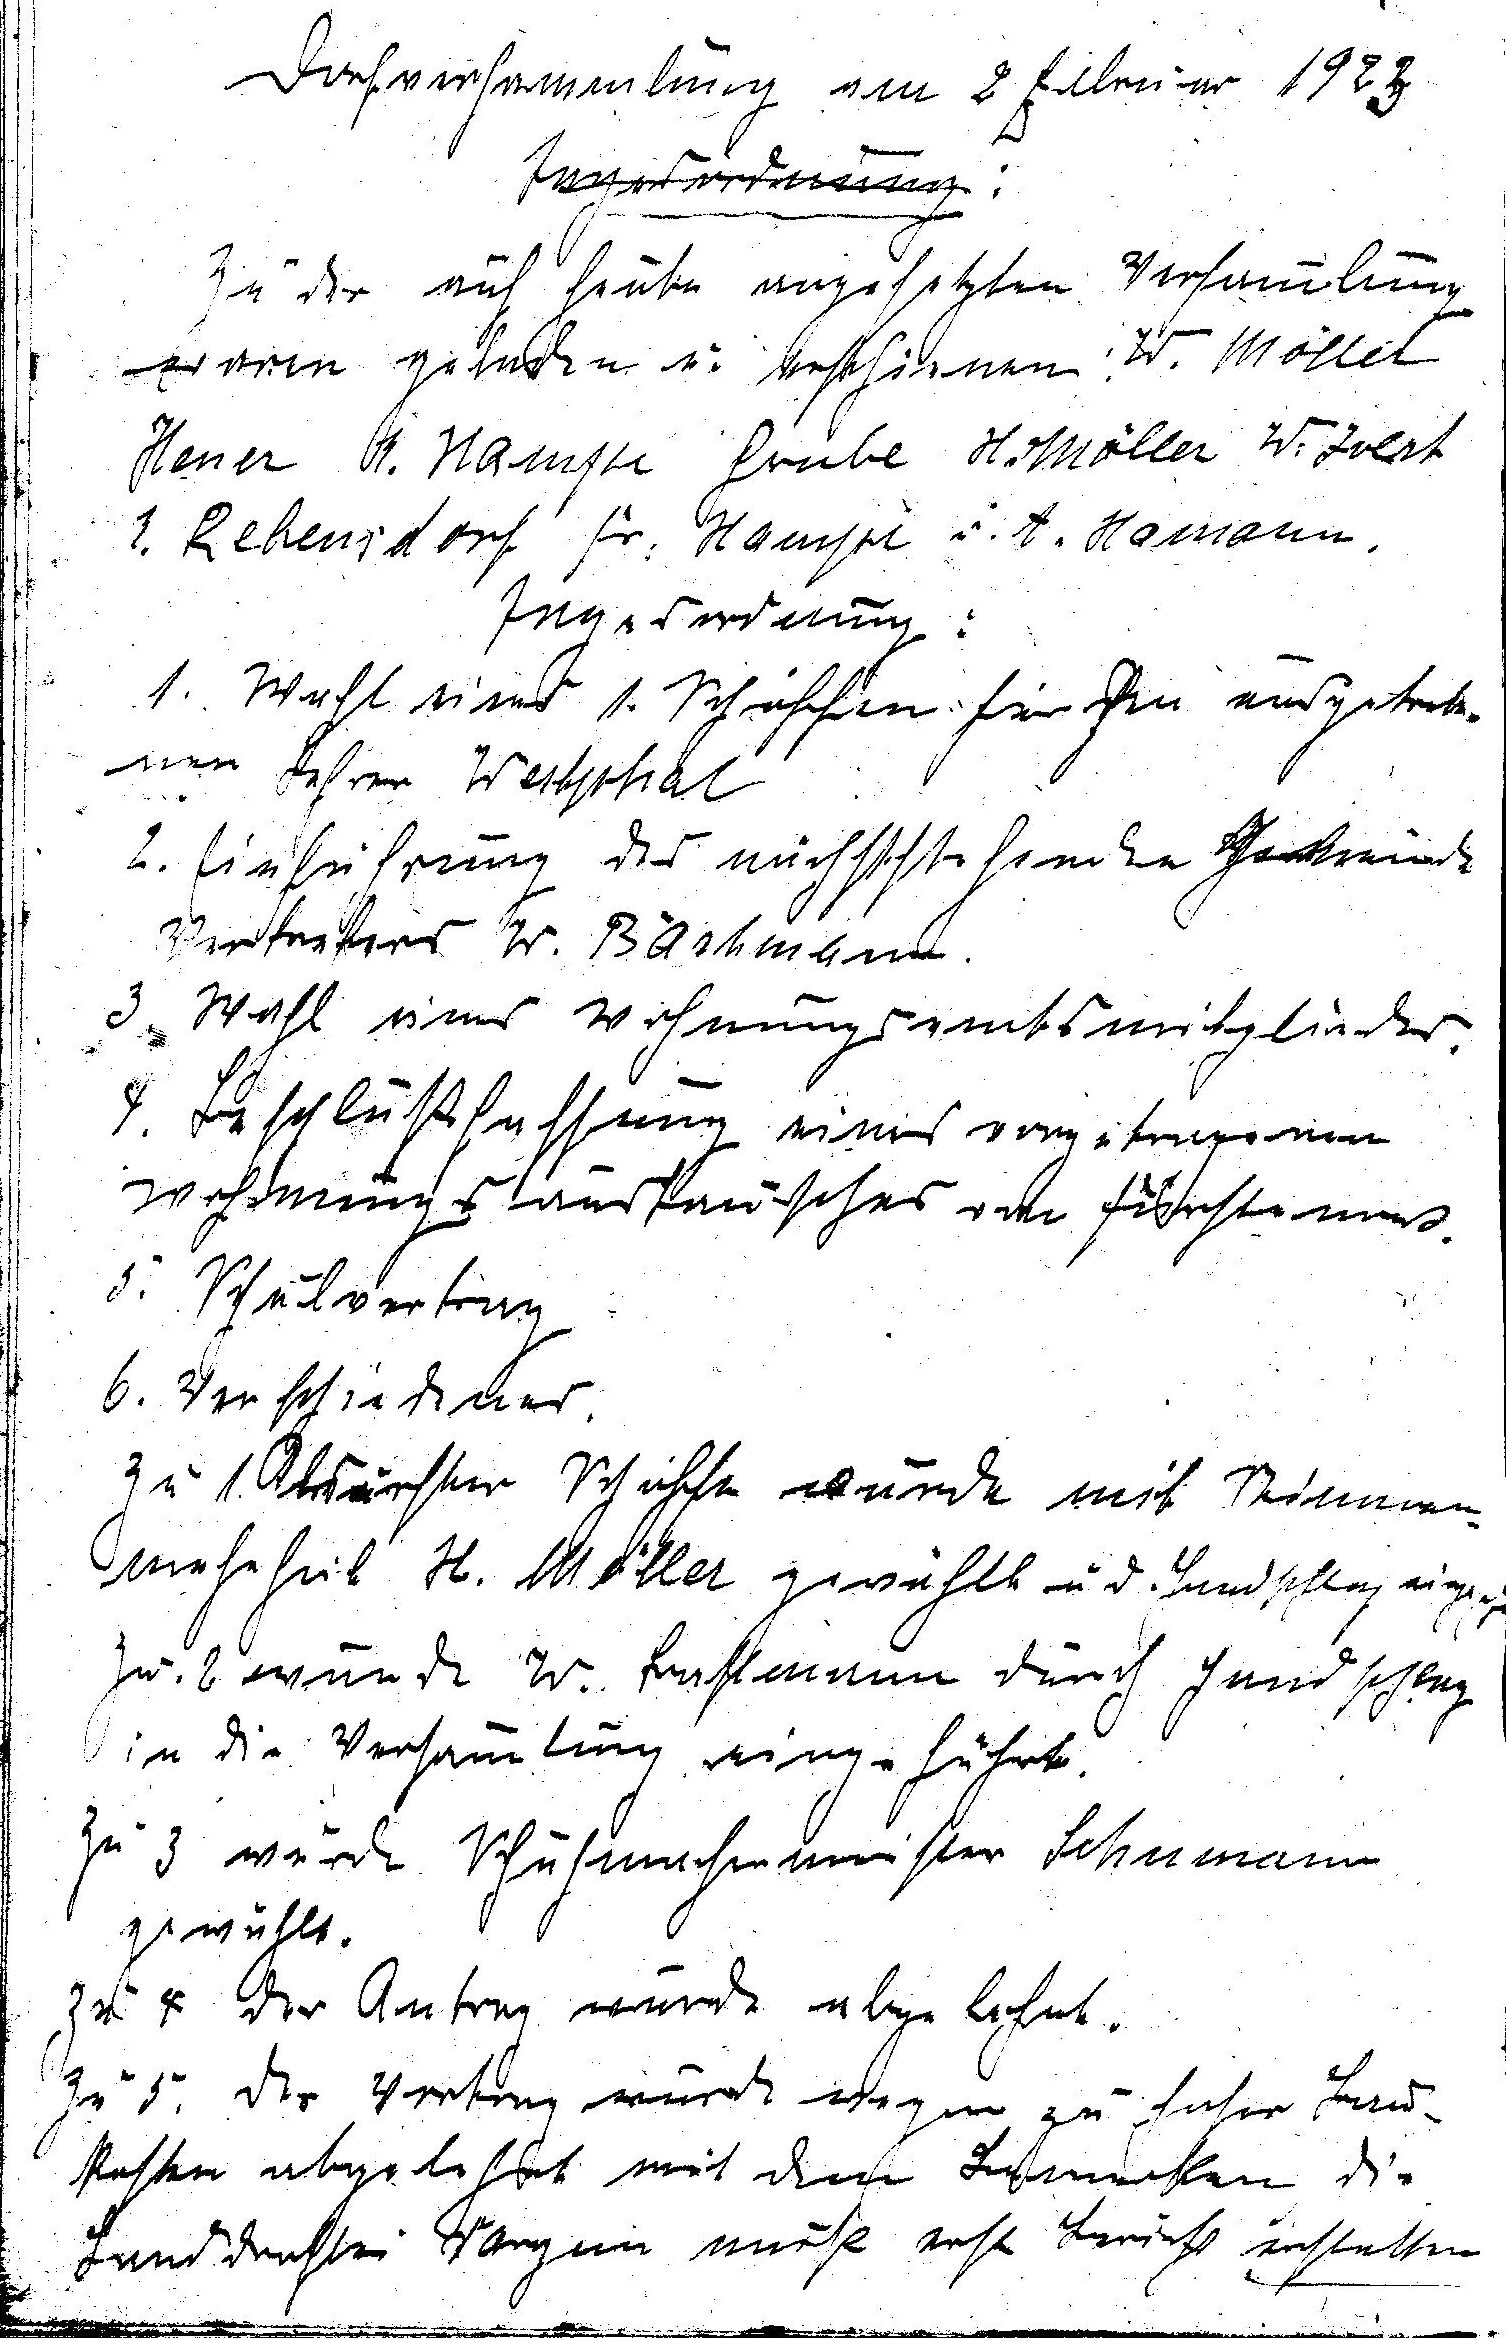 Dorfversammlung am 2 Februar 1923
Tagesordnung:
Zu der auf heute angesetzten Versamlung
waren geladen u. erschienen: W. Möller
Hener H. Hampe Grube H. Möller W.
Rebensdorf Fr. Hampe u. A. Hamann.
Tagesordnung:
1. Wahl eines 1. Schöffen für den ausgetrete-
nen Lehrer Westphal
2. Einführung des nächststehenden Gemeinde
Vertreters W. Bästmann.
3. Wahl eines Wohnungsamtsmitgliedes.
4. Beschlußfassung eines vorgetragenen
Wohnungsaustausches von
5. Schulvertrag
6. Verschiedenes.
Zu 1. Als erster Schöffe wurde mit Stimmen-
mehrheit H. Möller gewählt u d. Handschlag
Zu. 2 wurde W. Bastmann durch Handschlag
in die Versamlung eingeführt.
Zu 3 wurde Schuhmachermeister Schumann
gewählt.
Zu 4 der Antrag wurde abgelehnt.
Zu 5. der Vertrag wurde wegen zu hoher Bau-
kosten abgelehnt mit dem Bemerken die
Landdrostei muß erst Bericht erstatten